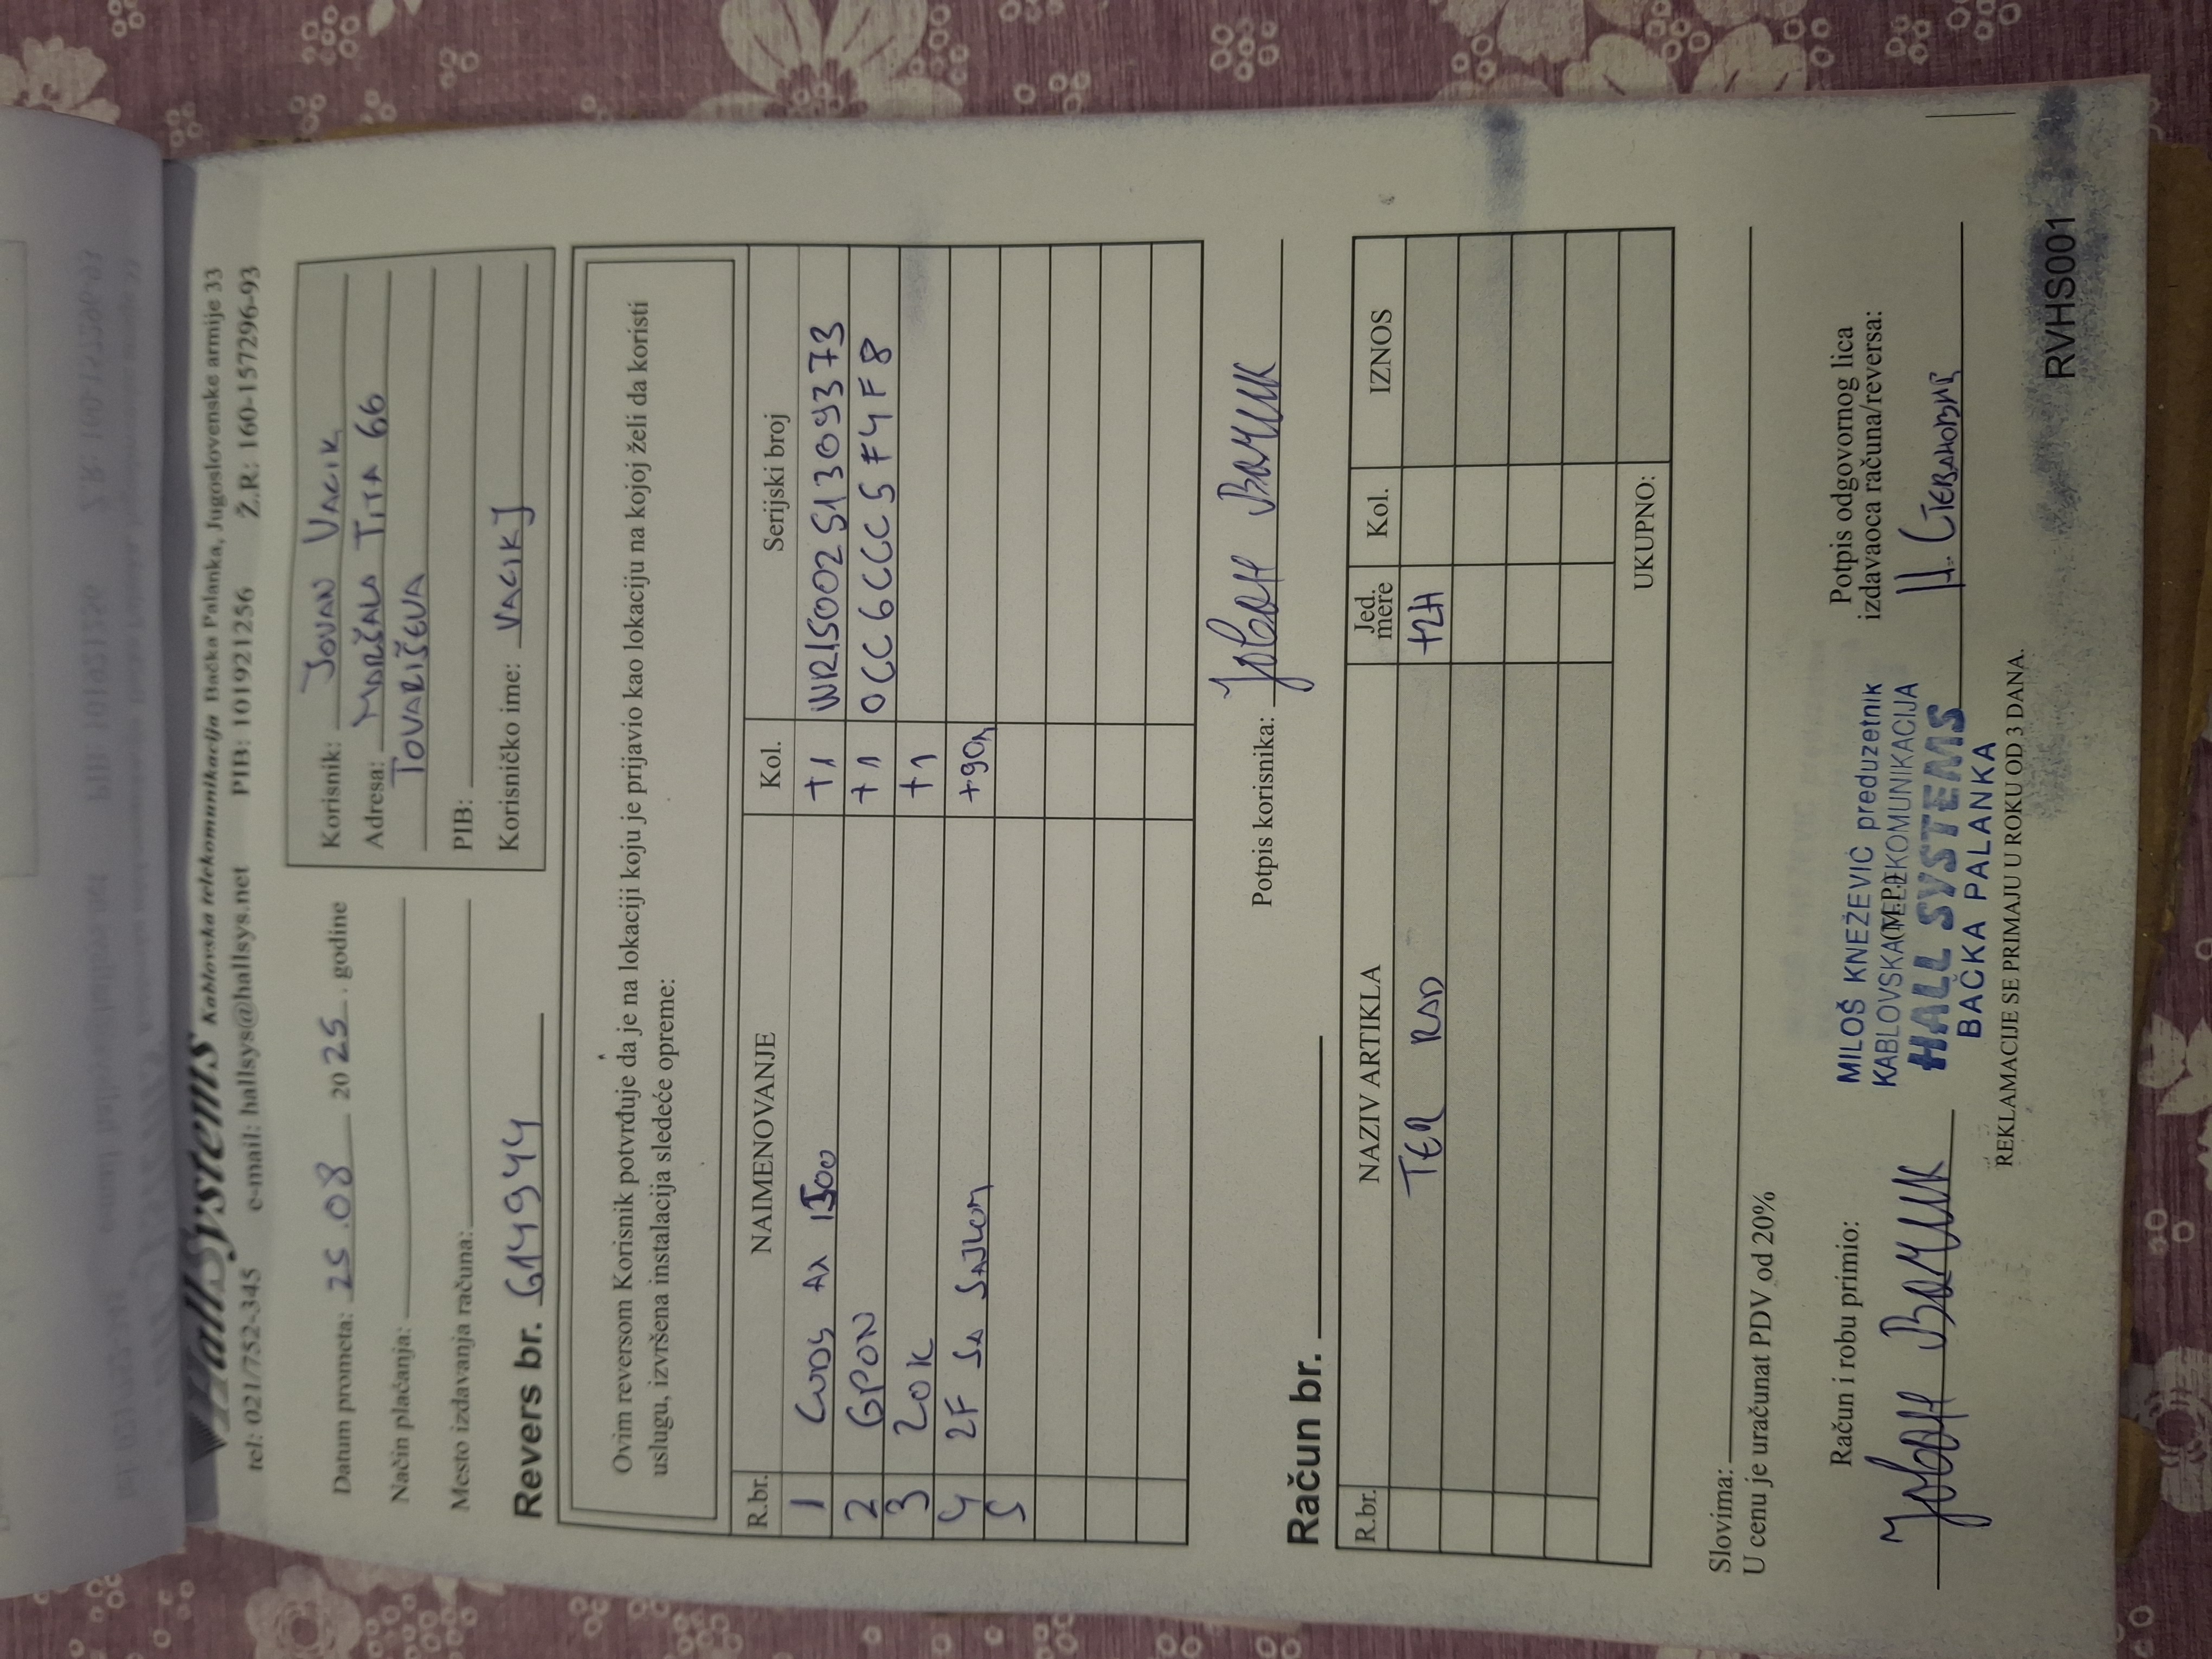 HallSystems Kablovska telekomunikacija Bačka Palanka, Jugoslovenske armije 33
tel: 021/752-345 e-mail: hallsys@hallsys.net PIB: 101921256 Ž.R: 160-157296-93
Datum prometa: 25.08 2025. godine
Način plaćanja:
Mesto izdavanja računa:
Korisnik: JOVAN VACIK
Adresa: MARŠALA TITA 66
TOVARIŠEVA
PIB:
Korisničko ime: VACIKJ
Revers br. 614944
Ovim reversom Korisnik potvrđuje da je na lokaciji koju je prijavio kao lokaciju na kojoj želi da koristi
uslugu, izvršena instalacija sledeće opreme:
R.br. NAIMENOVANJE Kol. Serijski broj
1 CUDY AX 1500 +1 WR1500251309373
2 GPON +1 0CC6CCC5F4F8
3 ZOK +1
4 2F SA SAJLOM +90m
5
Potpis korisnika: Јован Вацик
Račun br.
R.br. NAZIV ARTIKLA Jed. mere Kol. IZNOS
TER RAD +2H
UKUPNO:
Slovima:
U cenu je uračunat PDV od 20%
Račun i robu primio:
Јован Вацик
MILOŠ KNEŽEVIĆ preduzetnik
KABLOVSKA TELEKOMUNIKACIJA
(M.P.)
HALL SYSTEMS
BAČKA PALANKA
Potpis odgovornog lica
izdavaoca računa/reversa:
REKLAMACIJE SE PRIMAJU U ROKU OD 3 DANA.
RVHS001